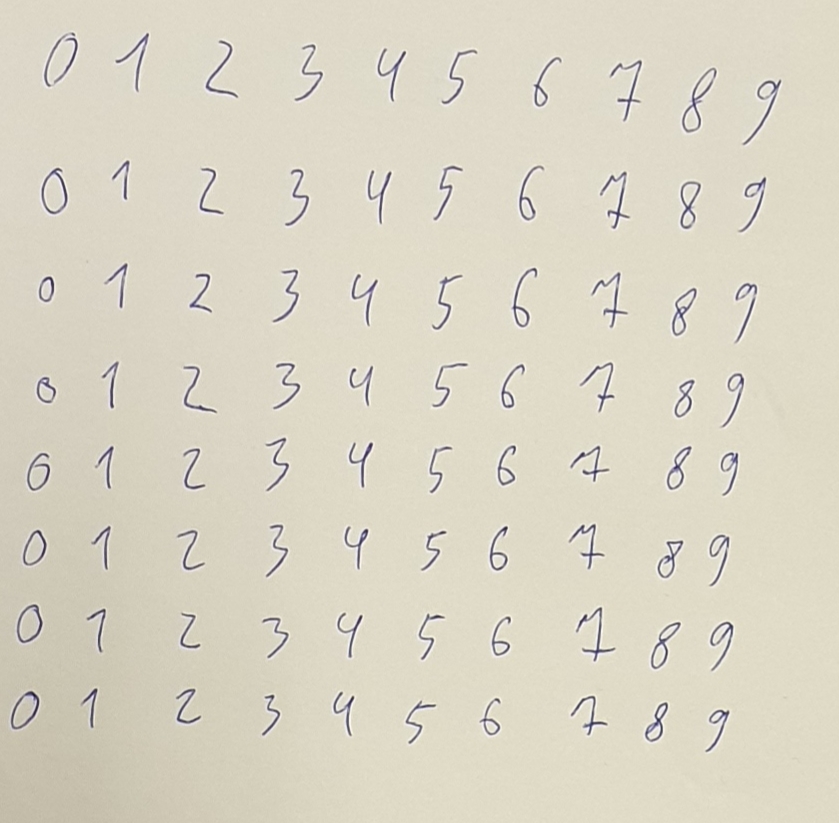 0 1 2 3 4 5 6 7 8 9
0 1 2 3 4 5 6 7 8 9
0 1 2 3 4 5 6 7 8 9
0 1 2 3 4 5 6 7 8 9
0 1 2 3 4 5 6 7 8 9
0 1 2 3 4 5 6 7 8 9
0 1 2 3 4 5 6 7 8 9
0 1 2 3 4 5 6 7 8 9